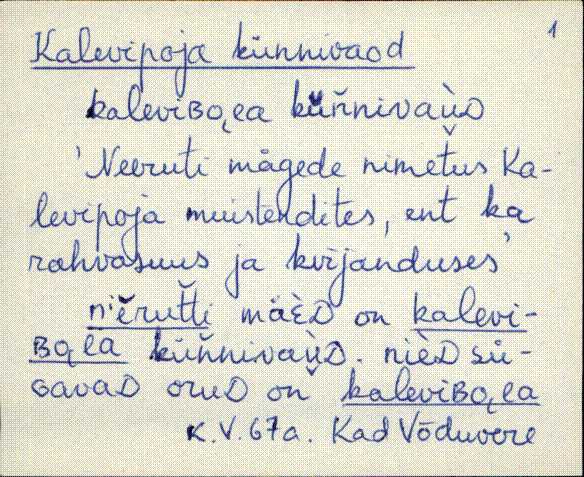 1
Kalevipoja künnivaod
kaleviʙo̭ea küňnivaùᴅ
'Neeruti mägede nimetus Ka-
levipoja muistendites, ent ka
rahvasuus ja kirjanduses'
nˈěruťti mäèᴅ on kalevi-
ʙo̭ea küňnivaùᴅ. nièᴅ sü-
ɢavaᴅ oruᴅ on kaleviʙo̭ea
K.V. 67a. Kad Võduvere